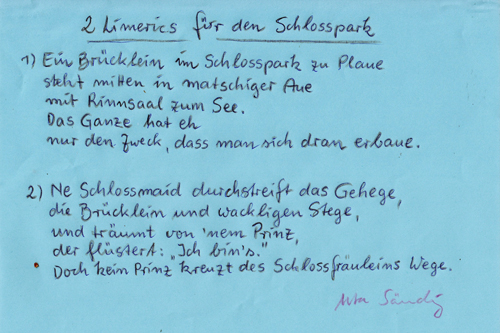 2 Limerics für den Schlosspark
1) Ein Brücklein im Schlosspark zu Plaue
steht mitten in matschiger Aue
mit Rinnsaal zum See.
Das Ganze hat eh
nur den Zweck, dass man sich dran erbaue.
2) Ne Schlossmaid durchstreift das Gehege,
die Brücklein und wackligen Stege,
und träumt von 'nem Prinz,
der flüstert: „Ich bin's."
Doch kein Prinz kreuzt des Schlossfräuleins Wege.